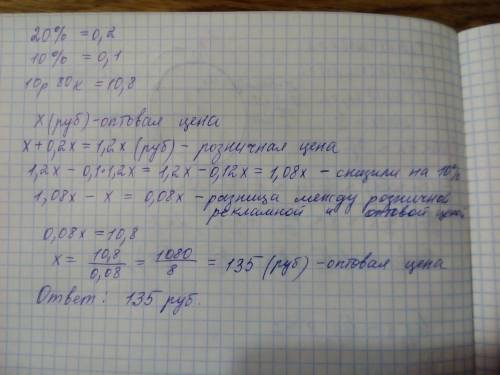 20% = 0,2
10% = 0,1
10р 80к = 10,8
х (руб) - оптовая цена
х + 0,2х = 1,2х (руб) - розничная цена
1,2х - 0,1·1,2х = 1,2х - 0,12х = 1,08х - снизили на 10%
1,08х - х = 0,08х - разница между розничной
рекламной и оптовой цено
0,08х = 10,8
х = 10,8/0,08 = 1080/8 = 135 (руб) - оптовая цена
Ответ: 135 руб.